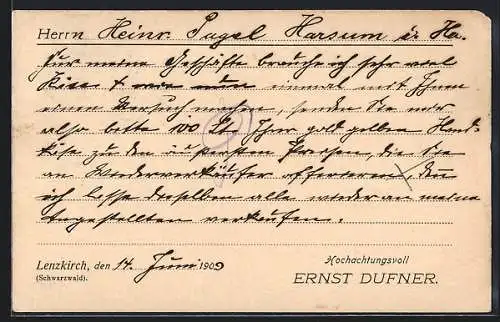 Herrn Heinr. Pagel Harsum i/ Ha.
Für meine Geschäfte brauche ich sehr viel
Käse + wie nun einmal mit Ihnen
einen Versuch machen, senden Sie mir
also bitte 100 St. Ihrer gold gelben Hand-
käse zu den äußersten Preisen, die Sie
an Wiederverkäufer offerieren, denn
ich lasse dieselben alle wieder an meine
Angestellten verkaufen.
Lenzkirch, den 14. Juni 1909
(Schwarzwald).
Hochachtungsvoll
ERNST DUFNER.